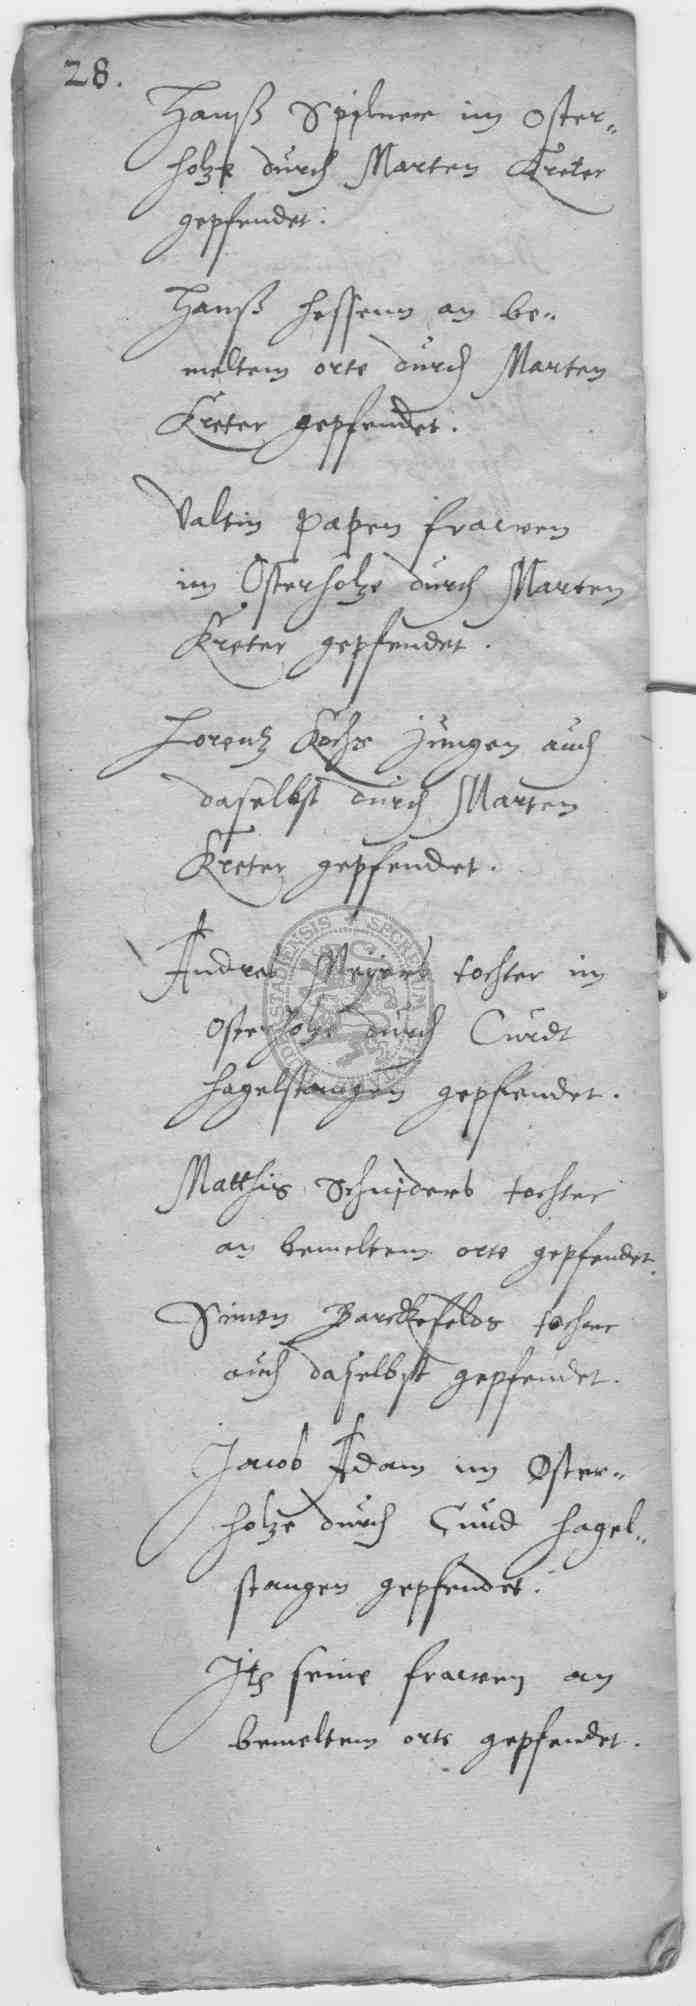 28.
Hanß Spilner im Oster-
holze durch Marten Kreter
gepfendet.
Hanß Hessenn an be-
meltem orte durch Marten
Kreter gepfendet.
Valtin Papen frawen
im Osterholze durch Marten
Kreter gepfendet.
Lorentz Kochs jungen auch
daselbst durch Marten
Kreter gepfendet.
Andres Meyers tochter im
Osterholze durch Curdt
Hagelstangen gepfendet.
Matthis Schniders tochter
an bemeltem orte gepfendet.
Simon Barckefelds tochter
auch daselbst gepfendet.
Jacob Adam im Oster-
holze durch Curd Hagel-
stangen gepfendet.
Itz seine frawen an
bemeltem orte gepfendet.